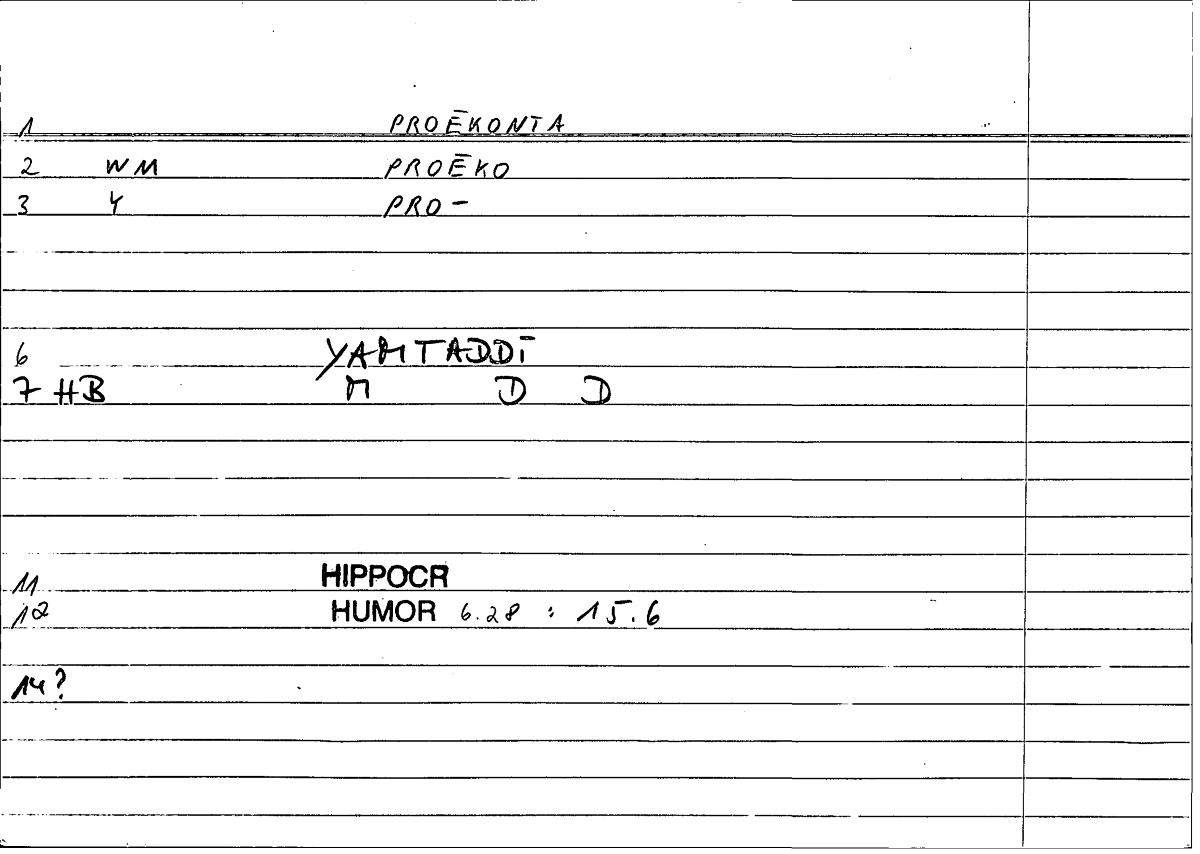 1 PROĒKONTA
2 WM PROĒKO
3 4 PRO-
6 YAMTADDĪ
7 HB M D D
11 HIPPOCR
12 HUMOR 6.28 : 15.6
14?